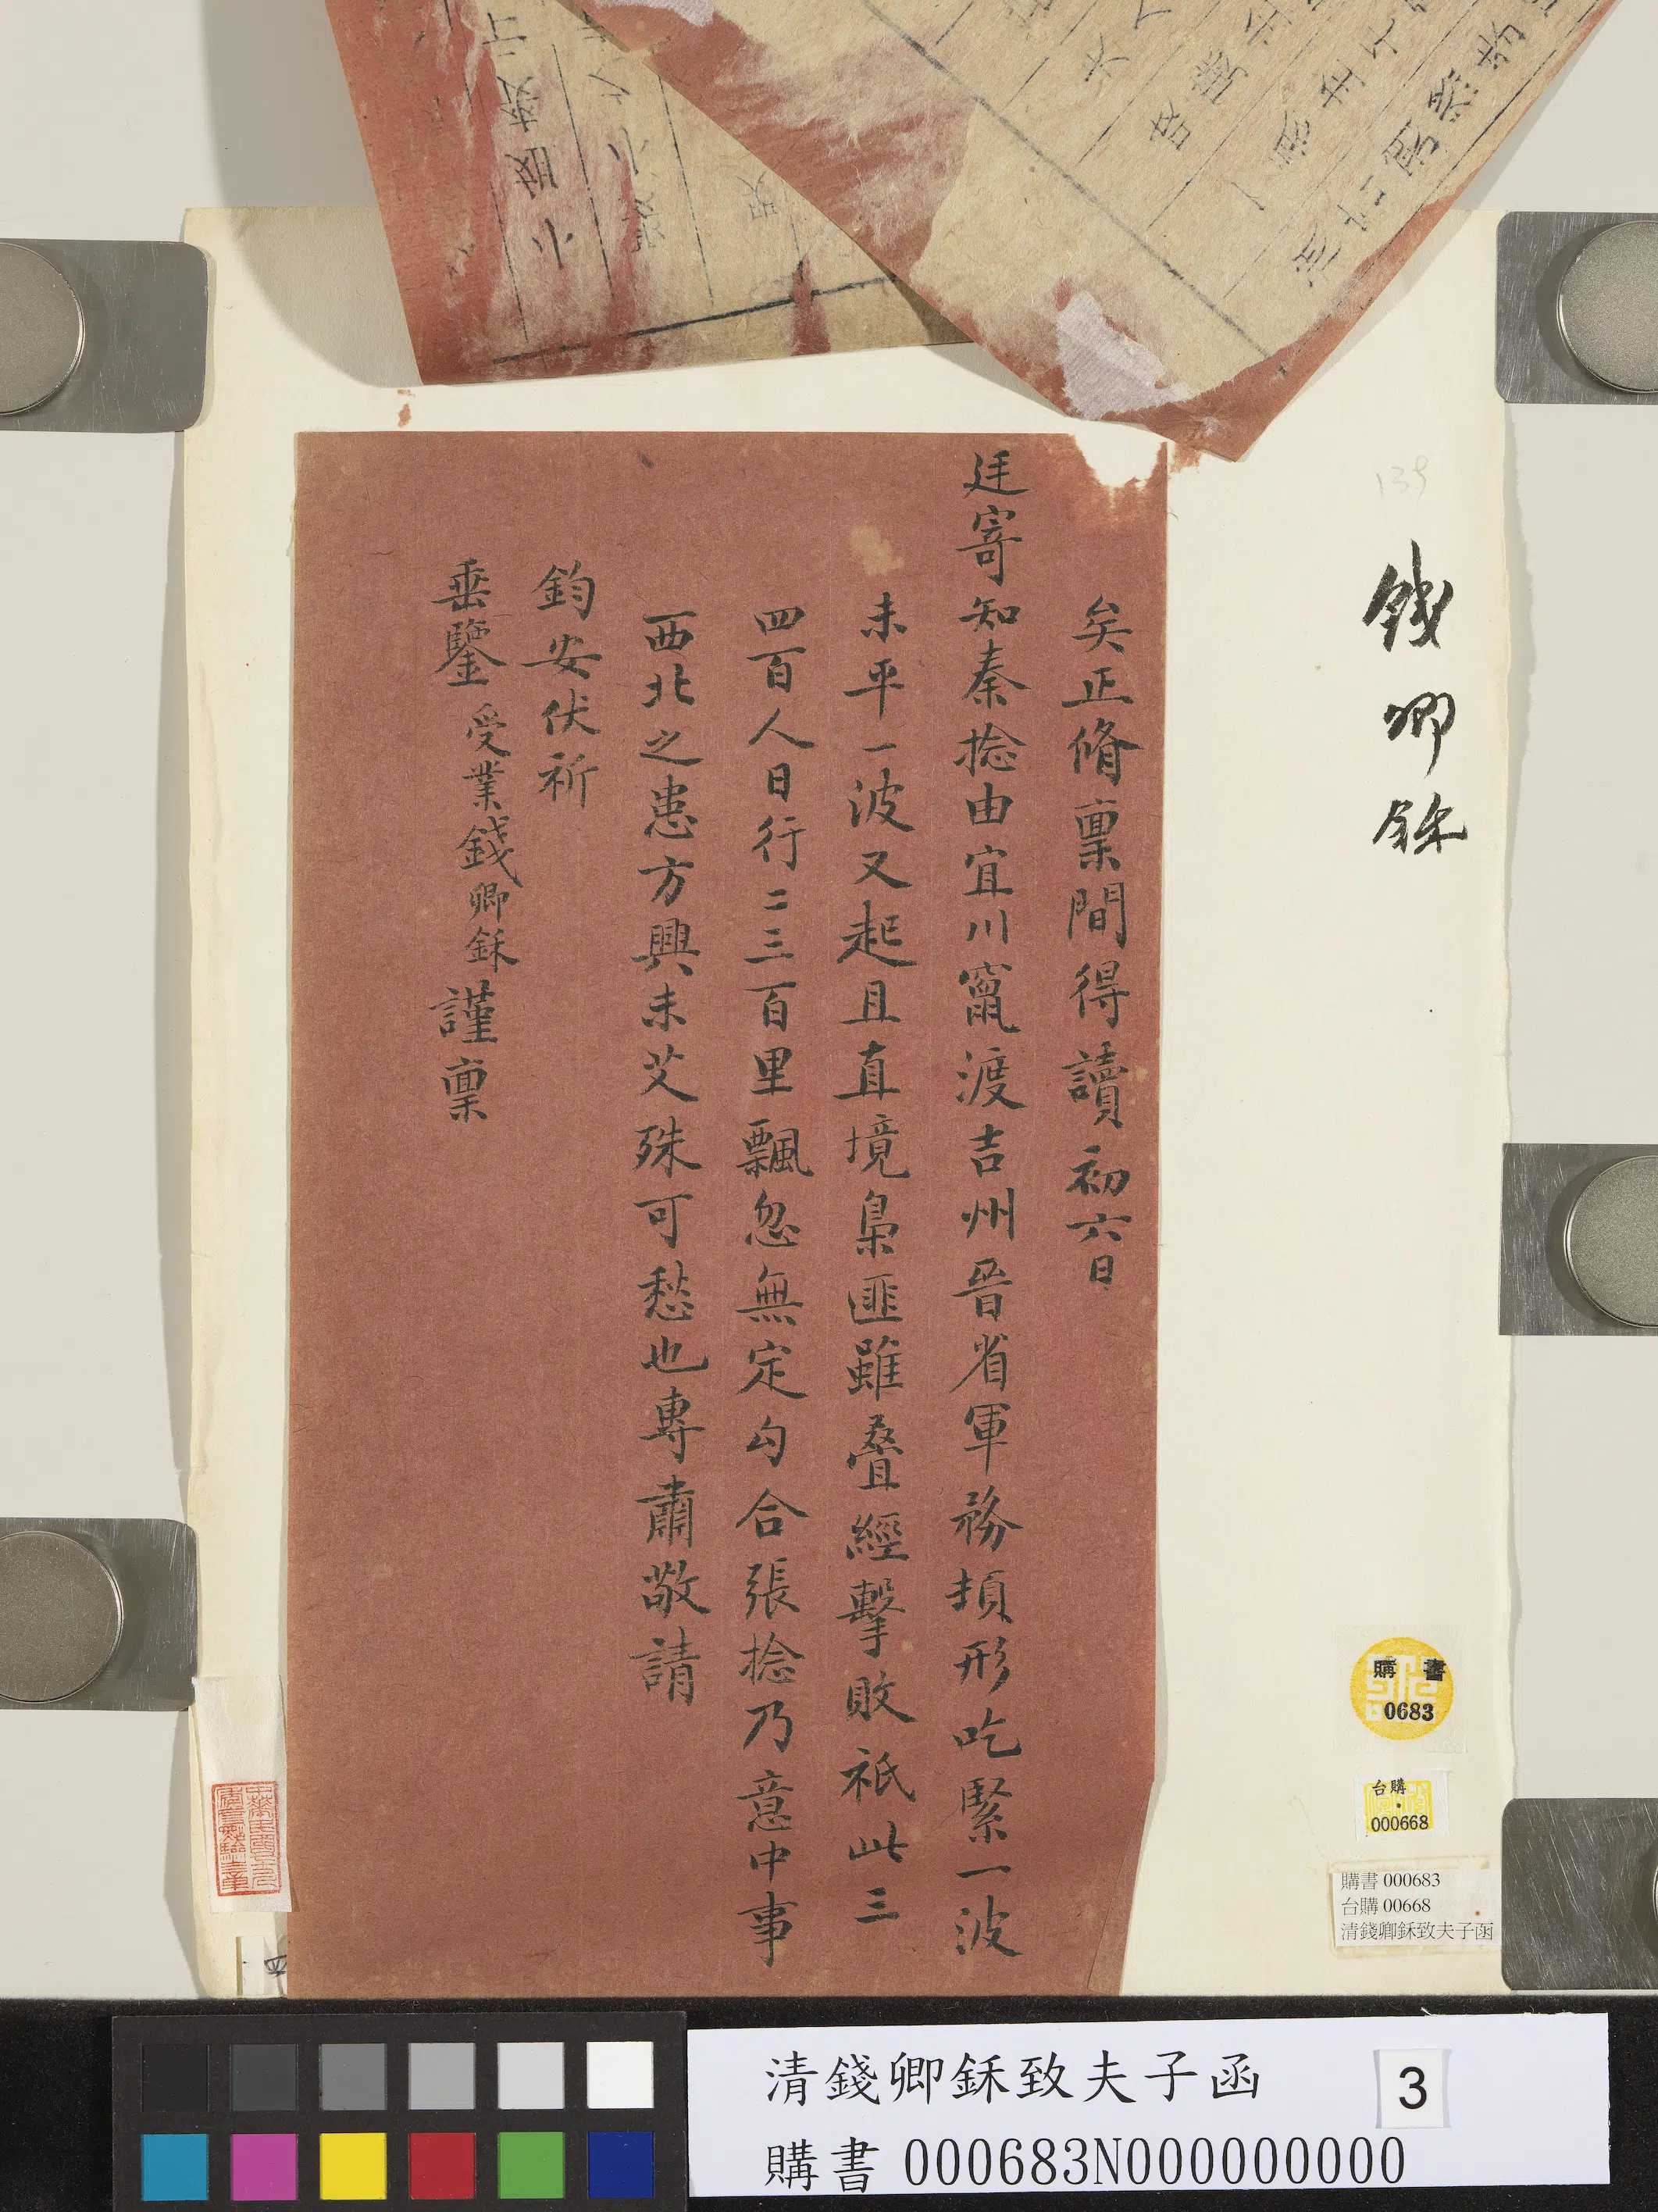 錢卿鉌
矣正脩稟間得讀初六日
廷寄知秦捻由宜川竄渡吉州晉省軍務頓形吃緊一波
未平一波又起且直境梟匪雖叠經擊敗祇此三
四百人日行二三百里飄忽無定勾合張捻乃意中事
西北之患方興未艾殊可愁也專肅敬請
鈞安伏祈
垂鑒 受業錢卿鉌謹稟
139
購書
0683
台購
000668
購書 000683
台購 00668
清錢卿鉌致夫子函
清錢卿鉌致夫子函
3
購書 000683N000000000